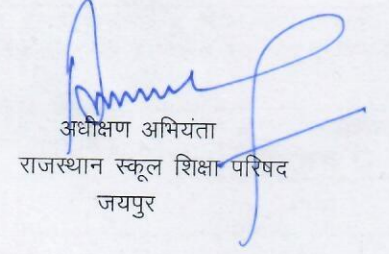 अधीक्षण अभियंता
राजस्थान स्कूल शिक्षा परिषद
जयपुर